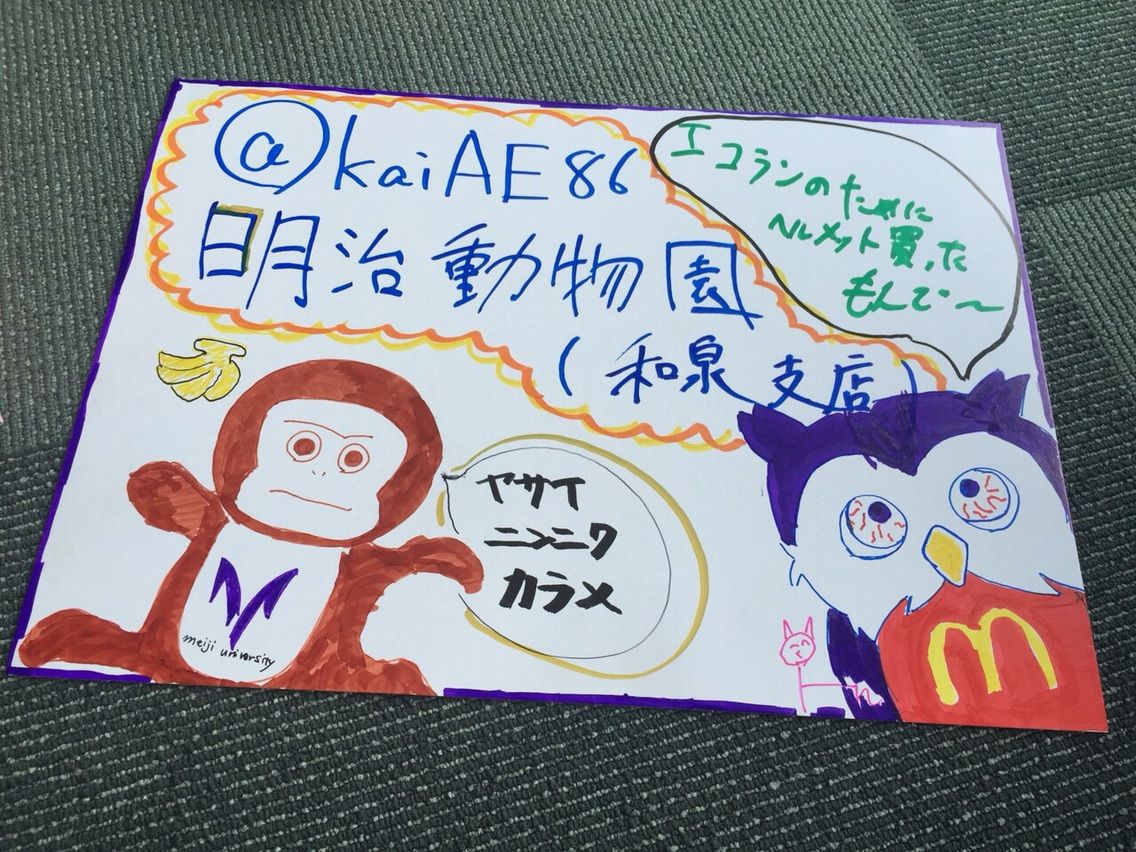 @kaiAE86
明治動物園
(和泉支店)
エコランのために
ヘルメット買った
もんで〜
ヤサイ
ニンニク
カラメ
meiji university
m